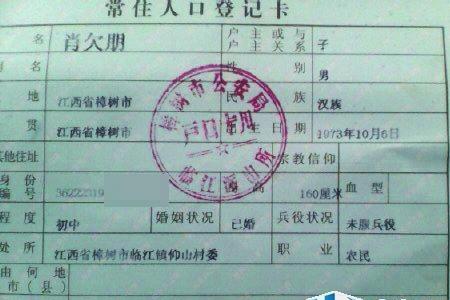 常住人口登记卡
名 肖欠朋 户主或与户主关系 子
名 性别 男
地 江西省樟树市 民族 汉族
贯 江西省樟树市 出生日期 1973年10月6日
其他住址 宗教信仰
身份编号 36222319 身高 160厘米 血型
程度 初中 婚姻状况 已婚 兵役状况 未服兵役
处所 江西省樟树市临江镇仰山村委 职业 农民
由何地
市(县)
樟树市公安局
户口专用
临江派出所